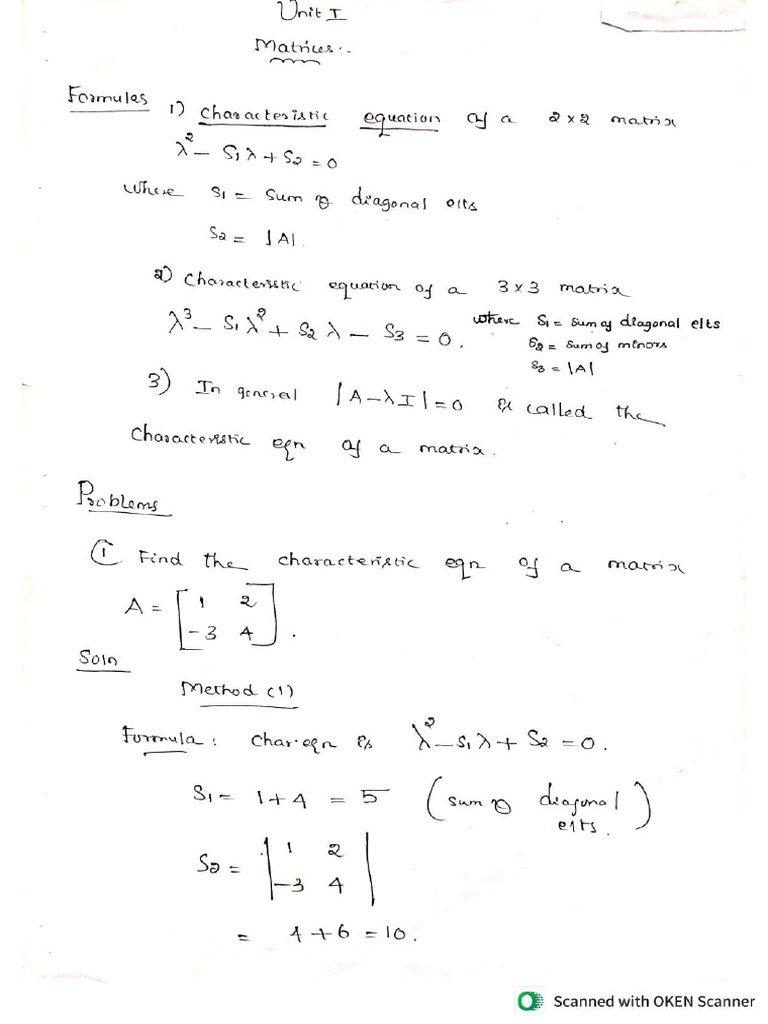 Unit I
Matrices:-
Formulas 1) Characteristic equation of a 2×2 matrix
λ² - S₁λ + S₂ = 0
Where S₁ = Sum of diagonal elts
S₂ = |A|.
2) Characteristic equation of a 3×3 matrix
λ³ - S₁λ² + S₂λ - S₃ = 0. where S₁ = Sum of diagonal elts
S₂ = Sum of minors
S₃ = |A|
3) In general |A-λI| = 0 is called the
Characteristic eqn of a matrix.
Problems
① Find the characteristic eqn of a matrix
A = [1 2
-3 4].
Soln
Method (1)
Formula: Char.eqn is λ² - S₁λ + S₂ = 0.
S₁ = 1+4 = 5 (sum of diagonal
elts.)
S₂ = |1 2
-3 4|
= 4+6 = 10.
Scanned with OKEN Scanner